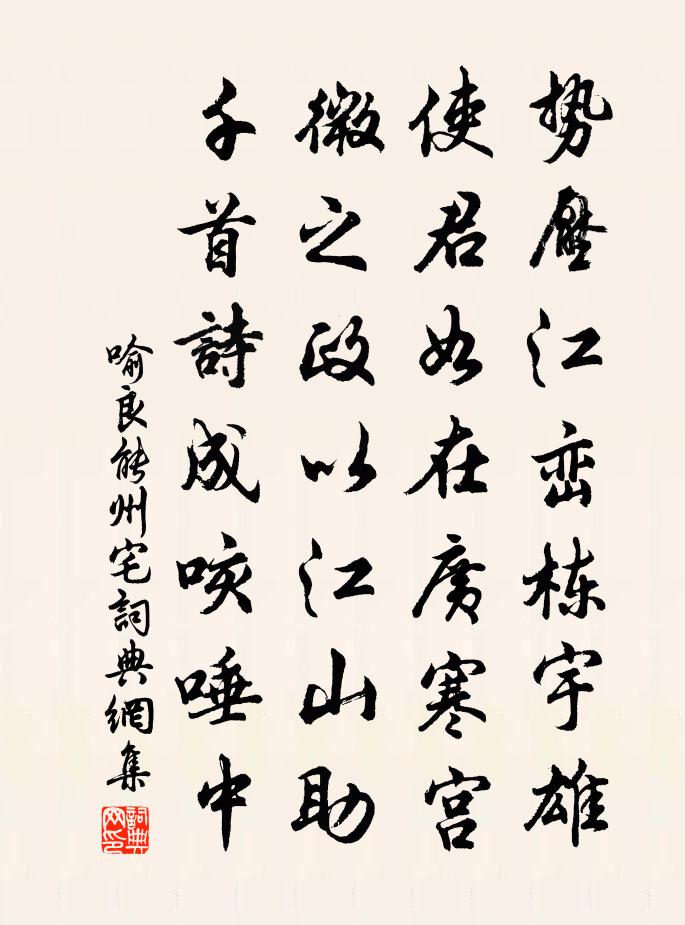 势壓江峦栋宇雄
使君如在廣寒宫
微之政以江山助
千首詩成咳唾中
喻良能州宅詞典網集
詞典網印